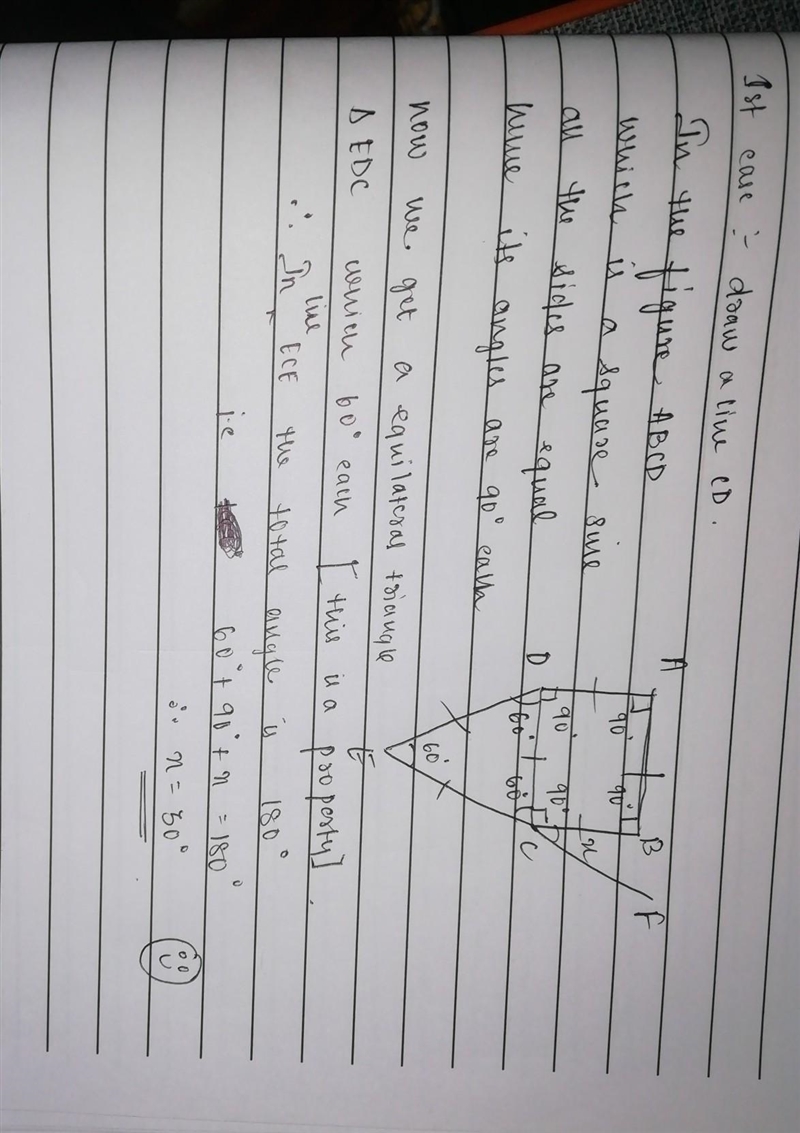 Ist case :- draw a line CD.
In the figure ABCD
which is a square sine
all the sides are equal
hence its angles are 90° each
now we get a equilateral triangle
Δ EDC which 60° each [ this is a property].
∴ In line ECF the total angle is 180°
i.e 60° + 90° + x = 180°
∴ x = 30°
A
B
F
90°
90°
x
90°
90°
D
C
60°
60°
60°
E